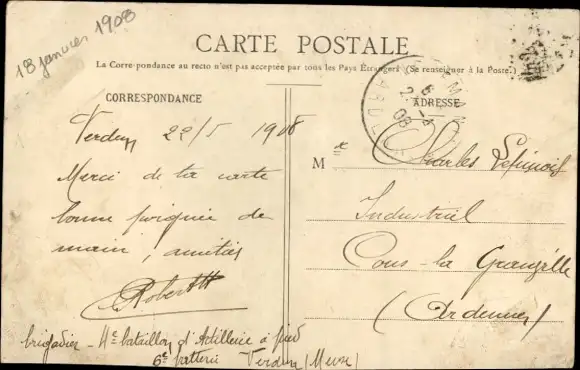 18 janvier 1908
CARTE POSTALE
La Correspondance au recto n'est pas acceptée par tous les Pays Étrangers (Se renseigner à la Poste.)
CORRESPONDANCE
ADRESSE
Verdun 22/5 1908
Merci de ta carte
bonne poignée de
main, amitiés
Robert
brigadier - 4e bataillon d'Artillerie à pied
6e batterie Verdun (Meuse)
Mr Charles Lépinois
Industriel
Cons-la Granville
(Ardennes)